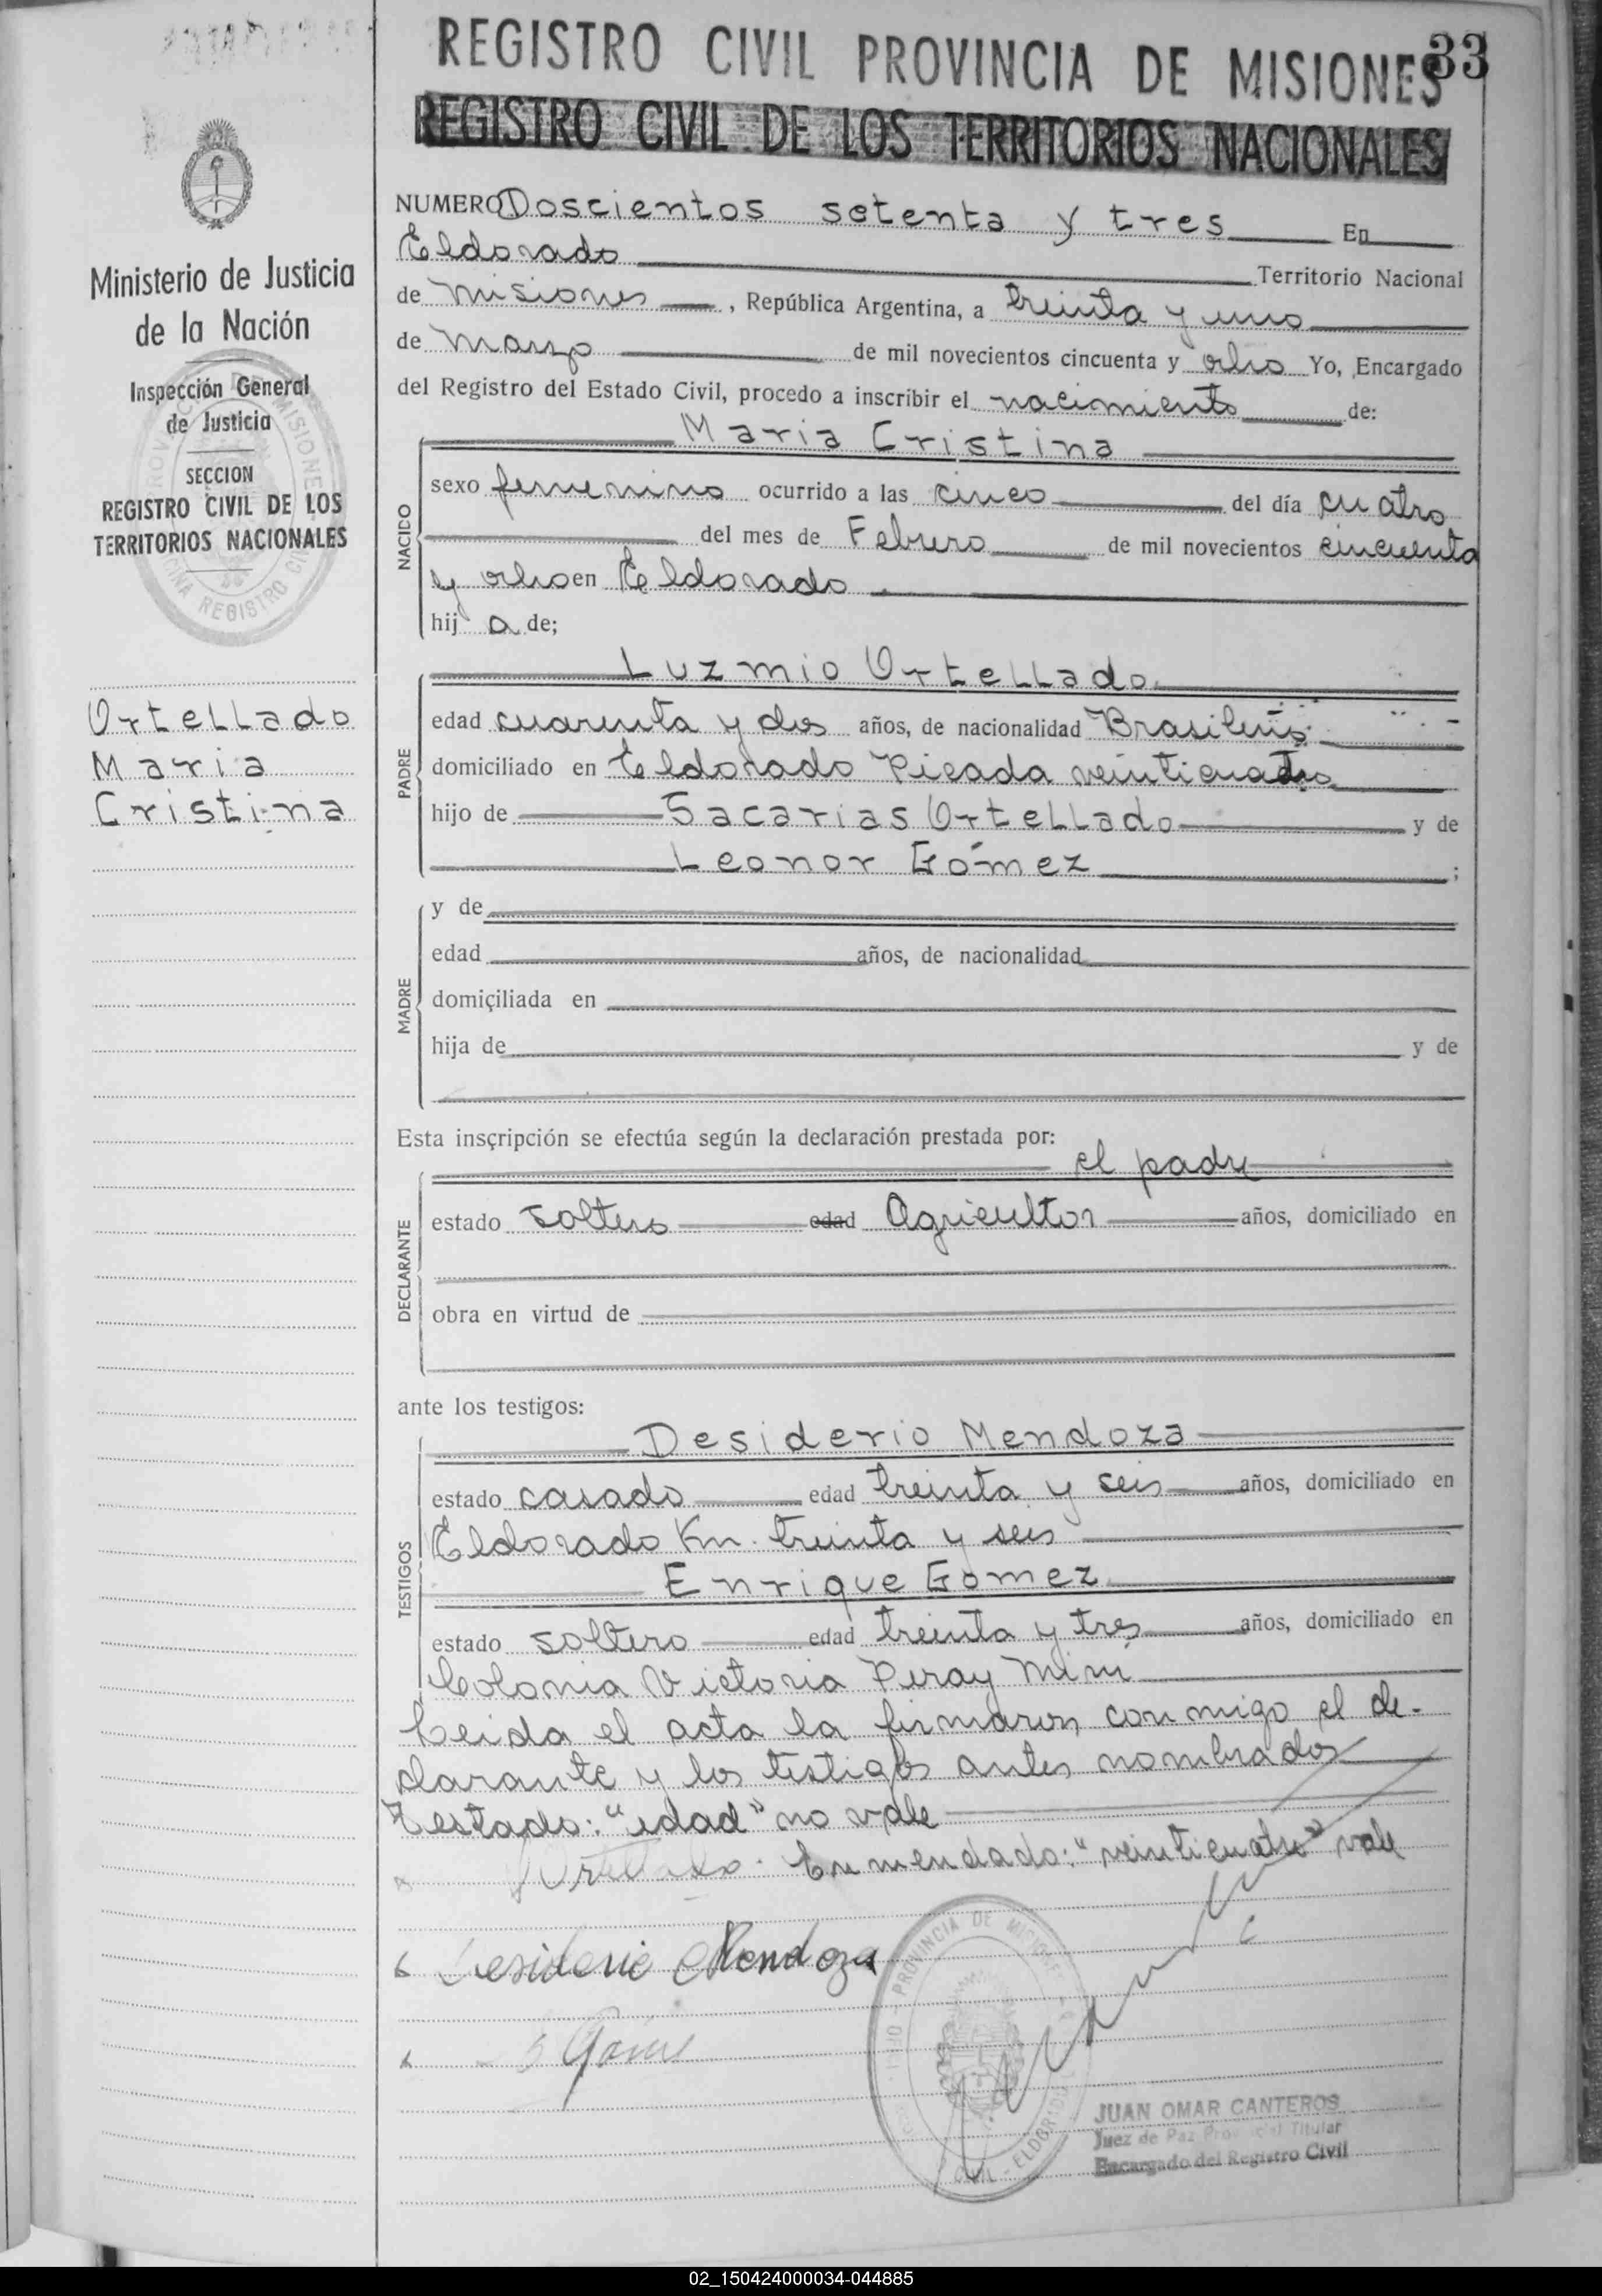 REGISTRO CIVIL PROVINCIA DE MISIONES
33
REGISTRO CIVIL DE LOS TERRITORIOS NACIONALES
Ministerio de Justicia
de la Nación
Inspección General
de Justicia
SECCION
REGISTRO CIVIL DE LOS
TERRITORIOS NACIONALES
Ortellado
Maria
Cristina
NUMERO Doscientos setenta y tres En
Eldorado Territorio Nacional
de Misiones, República Argentina, a treinta y uno
de Marzo de mil novecientos cincuenta y ocho Yo, Encargado
del Registro del Estado Civil, procedo a inscribir el nacimiento de:
Maria Cristina
NACIDO
sexo femenino ocurrido a las cinco del día cuatro
del mes de Febrero de mil novecientos cincuenta
y ocho en Eldorado
hija de;
Luzmio Ortellado
PADRE
edad cuarenta y dos años, de nacionalidad Brasileña
domiciliado en Eldorado Picada veinticuatro
hijo de Sacarias Ortellado y de
Leonor Gómez;
MADRE
y de
edad años, de nacionalidad
domiciliada en
hija de y de
Esta inscripción se efectúa según la declaración prestada por:
el padre
DECLARANTE
estado soltero edad Agricultor años, domiciliado en
obra en virtud de
ante los testigos:
Desiderio Mendoza
TESTIGOS
estado casado edad treinta y seis años, domiciliado en
Eldorado Km. treinta y seis
Enrique Gomez
estado soltero edad treinta y tres años, domiciliado en
Colonia Victoria Piray Mini
Leida el acta la firmaron conmigo el de-
clarante y los testigos antes nombrados
Testado: "edad" no vale
Ortellado. Enmendado: "veinticuatro" vale
Desiderio Mendoza
PROVINCIA DE MISIONES
CIVIL - ELDORADO
JUAN OMAR CANTEROS
Juez de Paz Provincial Titular
Encargado del Registro Civil
02_150424000034-044885